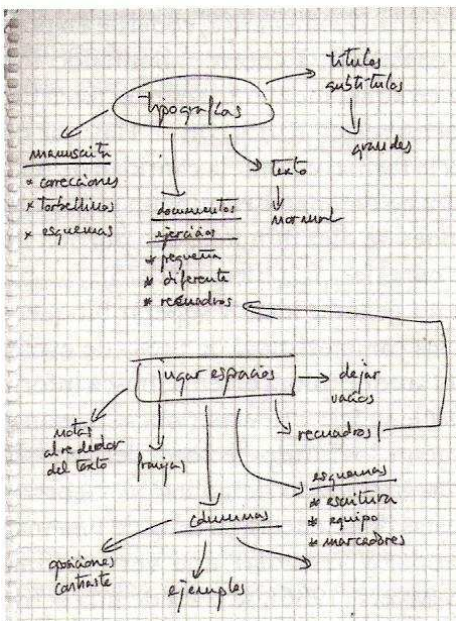 títulos
subtítulos
tipografías
grandes
manuscrita
* correcciones
* torbellinos
* esquemas
texto
normal
documentos
ejercicios
* pequeña
* diferente
* recuadros
jugar espacios
dejar
vacíos
recuadros
notas
alrededor
del texto
franjas
esquemas
* escritura
* equipo
* marcadores
columnas
oposiciones
contraste
ejemplos